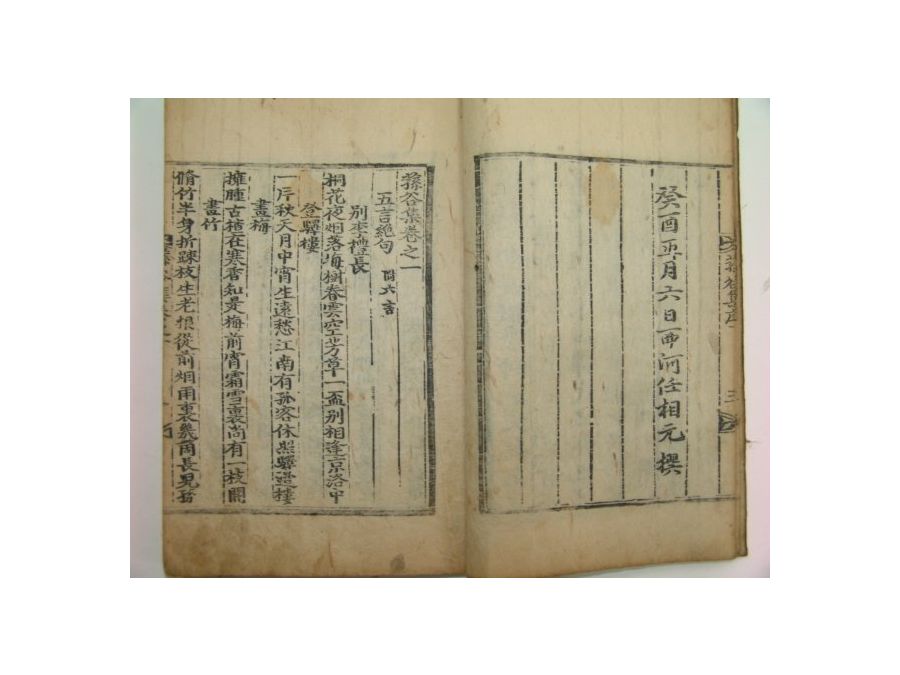 蓀谷集序
三
癸酉 月六日西河任相元撰
蓀谷集卷之一
五言絶句 附六言
別李禮長
桐花夜烟落海樹春雲空芳草一盃別相逢京洛中
登驛樓
一片秋天月中宵生遠愁江南有孤客休照驛邊樓
畫梅
擁腫古槎在寒香知是梅前宵霜雪裏尚有一枝開
畫竹
脩竹半身折踈枝生老根從前烟雨裏幾 長兒孫